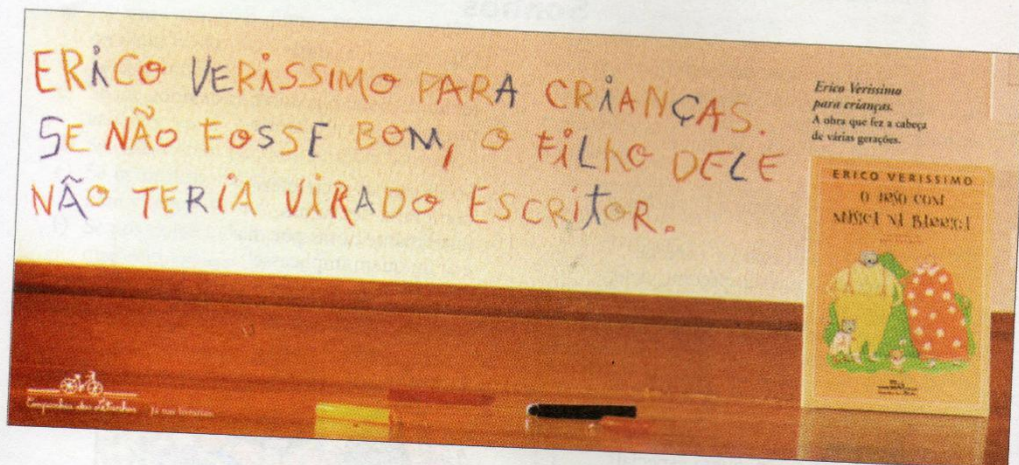 ERICO VERISSIMO PARA CRIANÇAS.
SE NÃO FOSSE BOM, O FILHO DELE
NÃO TERIA VIRADO ESCRITOR.
Erico Verissimo
para crianças.
A obra que fez a cabeça
de várias gerações.
ERICO VERISSIMO
O URSO COM
MÚSICA NA BARRIGA
Companhia das Letrinhas
Já nas livrarias